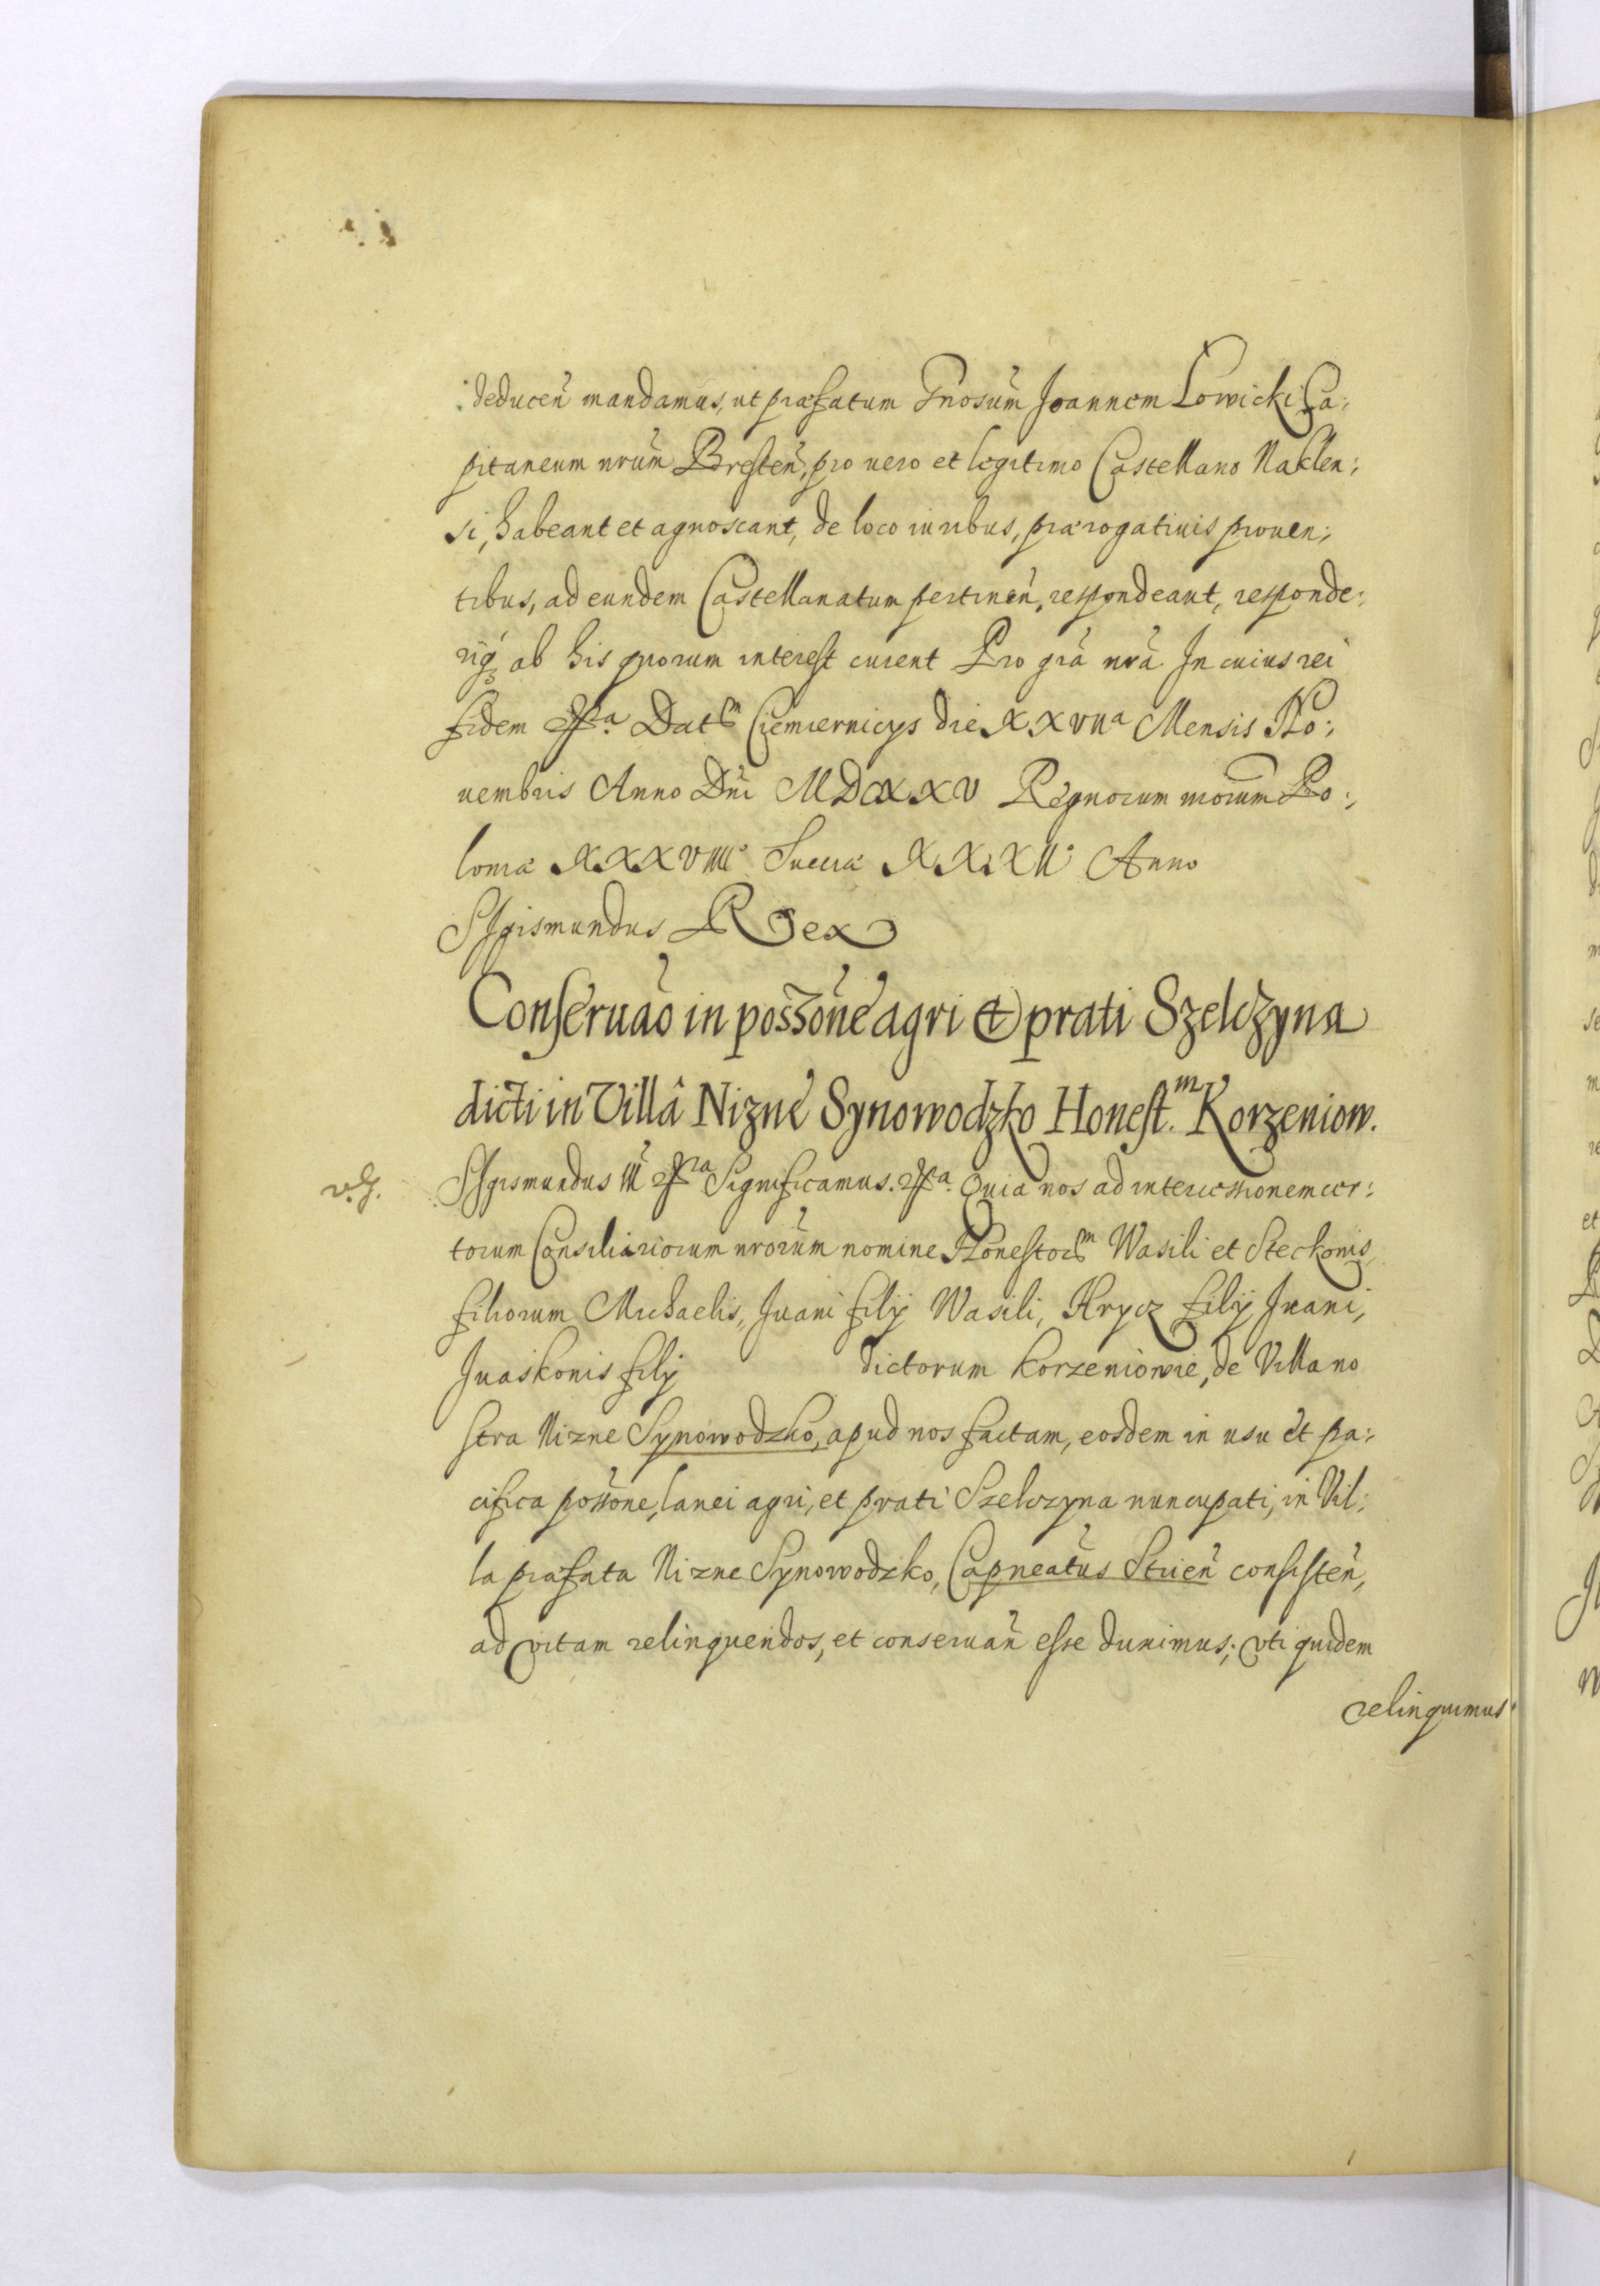 deduceñ mandamus, ut præfatum Gnosum̃ Joannem Lowicki Ca:
pitaneum nrum̃ Bresteñ, pro vero et legitimo Castellano Naklen:
si, habeant et agnoscant, de loco iuribus, prærogatiuis prouen:
tibus, ad eundem Castellanatum pertineñ, respondeant, responde:
riq́ȝ ab his quorum interest curent Pro grã nrã In cuius rei
fidem Dat͞m Ciemiernicys die XXVIIa Mensis No:
uembris Anno Dñi MDCXXV Regnorum nrorum Po:
loniæ XXXVIII° Sueciæ XXXII° Anno
SIgismundus Rex
Conseruaõ in possõne agri et prati Szelczyna
dicti in Villâ Nizne Synowodzko Honest.m Korzeniow.
SIgismundus III Significamus. Quia nos ad intercessionem cer:
torum Consiliariorum nrorum̃ nomine Honestor͞m Wasili et Steckonis
filiorum Michaelis, Iuani filÿ Wasili, Hrycz filÿ Iuani,
Iuaskonis filÿ dictorum Korzeniowie, de Villa no
stra Nizne Synowodzko, apud nos factam, eosdem in usu et pa:
cifica possõne, lanei agri, et prati Szelczyna nuncupati, in Vil:
la præfata Nizne Synowodzko, Capneatũs Strieñ consisteñ,
ad vitam relinquendos, et conseruañ esse duximus; vti quidem
relinquimus